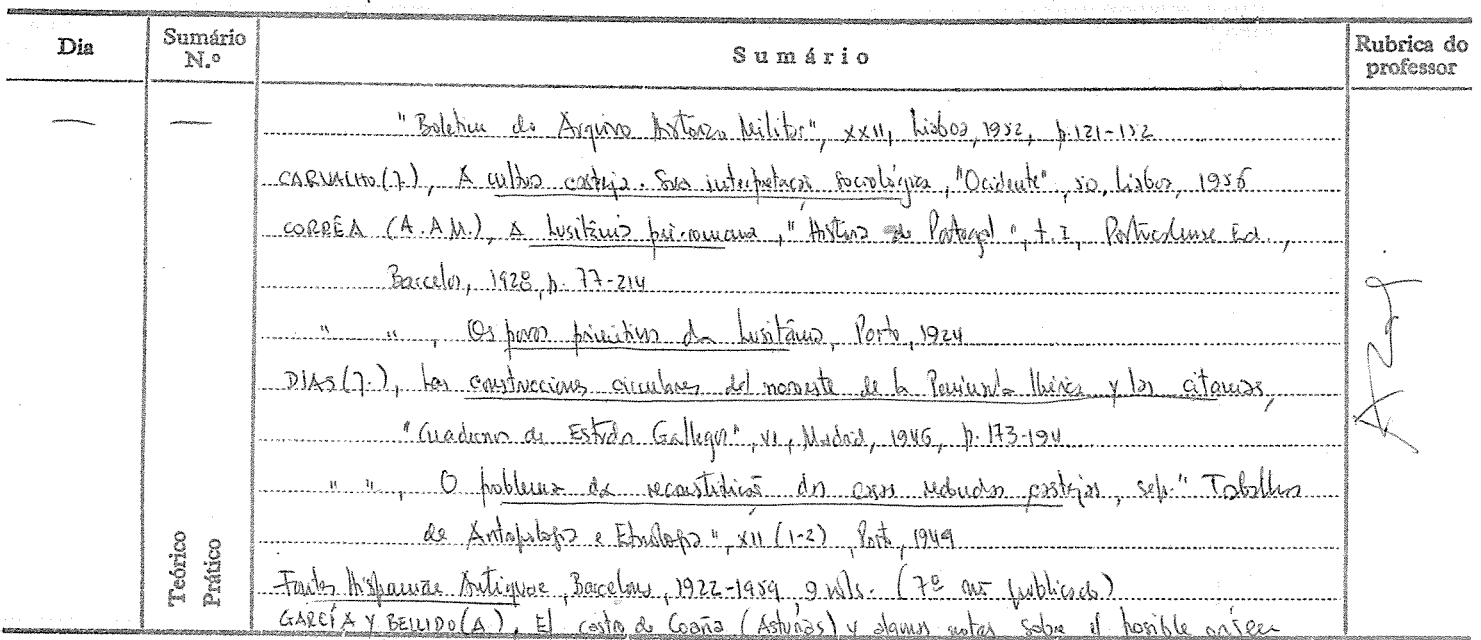 Dia
Sumário N.º
Sumário
Rubrica do professor
— — "Boletim do Arquivo Histórico Militar", XXII, Lisboa, 1952, p. 121-152
CARVALHO (J.), A cultura casteja. Sua interpretação sociológica, "Ocidente", 50, Lisboa, 1956
CORRÊA (A. A M.), A Lusitânia pré-romana, "História de Portugal", t. I, Portucalense Ed.,
Barcelos, 1928, p. 77-214
" ", Os povos primitivos da Lusitânia, Porto, 1924
DIAS (J.), Las construcciones circulares del noroeste de la Península Ibérica y las citanias,
"Cuadernos de Estudos Gallegos", VI, Madrid, 1946, p. 173-194
" ", O problema da reconstituição das casas redondas castejas, sep. "Trabalhos
de Antropologia e Etnologia", XII (1-2), Porto, 1949
Fontes Hispaniae Antiquae, Barcelona, 1922-1959 9 vols. (7º não publicado)
GARCÍA Y BELLIDO (A.), El castro de Coaña (Asturias) y algunas notas sobre el posible origen
Teórico
Prático